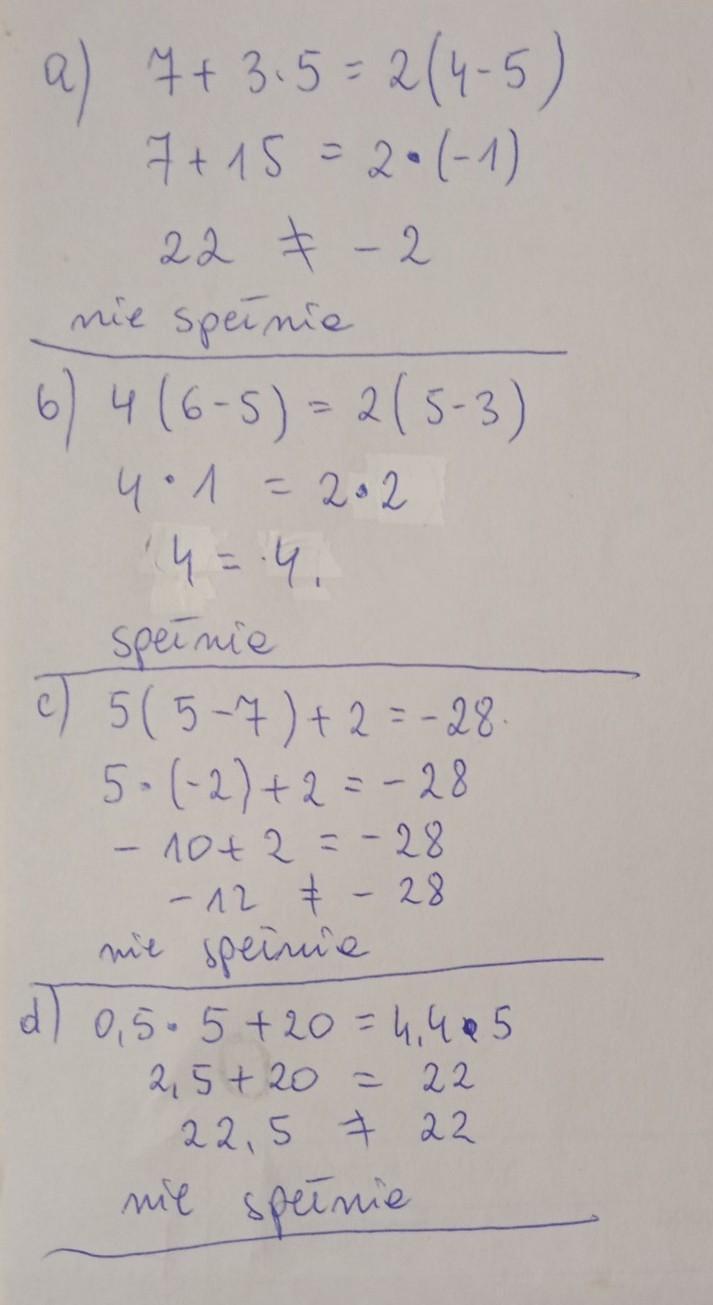 a) 7 + 3·5 = 2(4-5)
7 + 15 = 2·(-1)
22 ≠ -2
nie spełnia
b) 4(6-5) = 2(5-3)
4·1 = 2·2
4 = 4.
spełnia
c) 5(5-7) + 2 = -28
5·(-2) + 2 = -28
-10 + 2 = -28
-12 ≠ -28
nie spełnia
d) 0,5·5 + 20 = 4,4·5
2,5 + 20 = 22
22,5 ≠ 22
nie spełnia